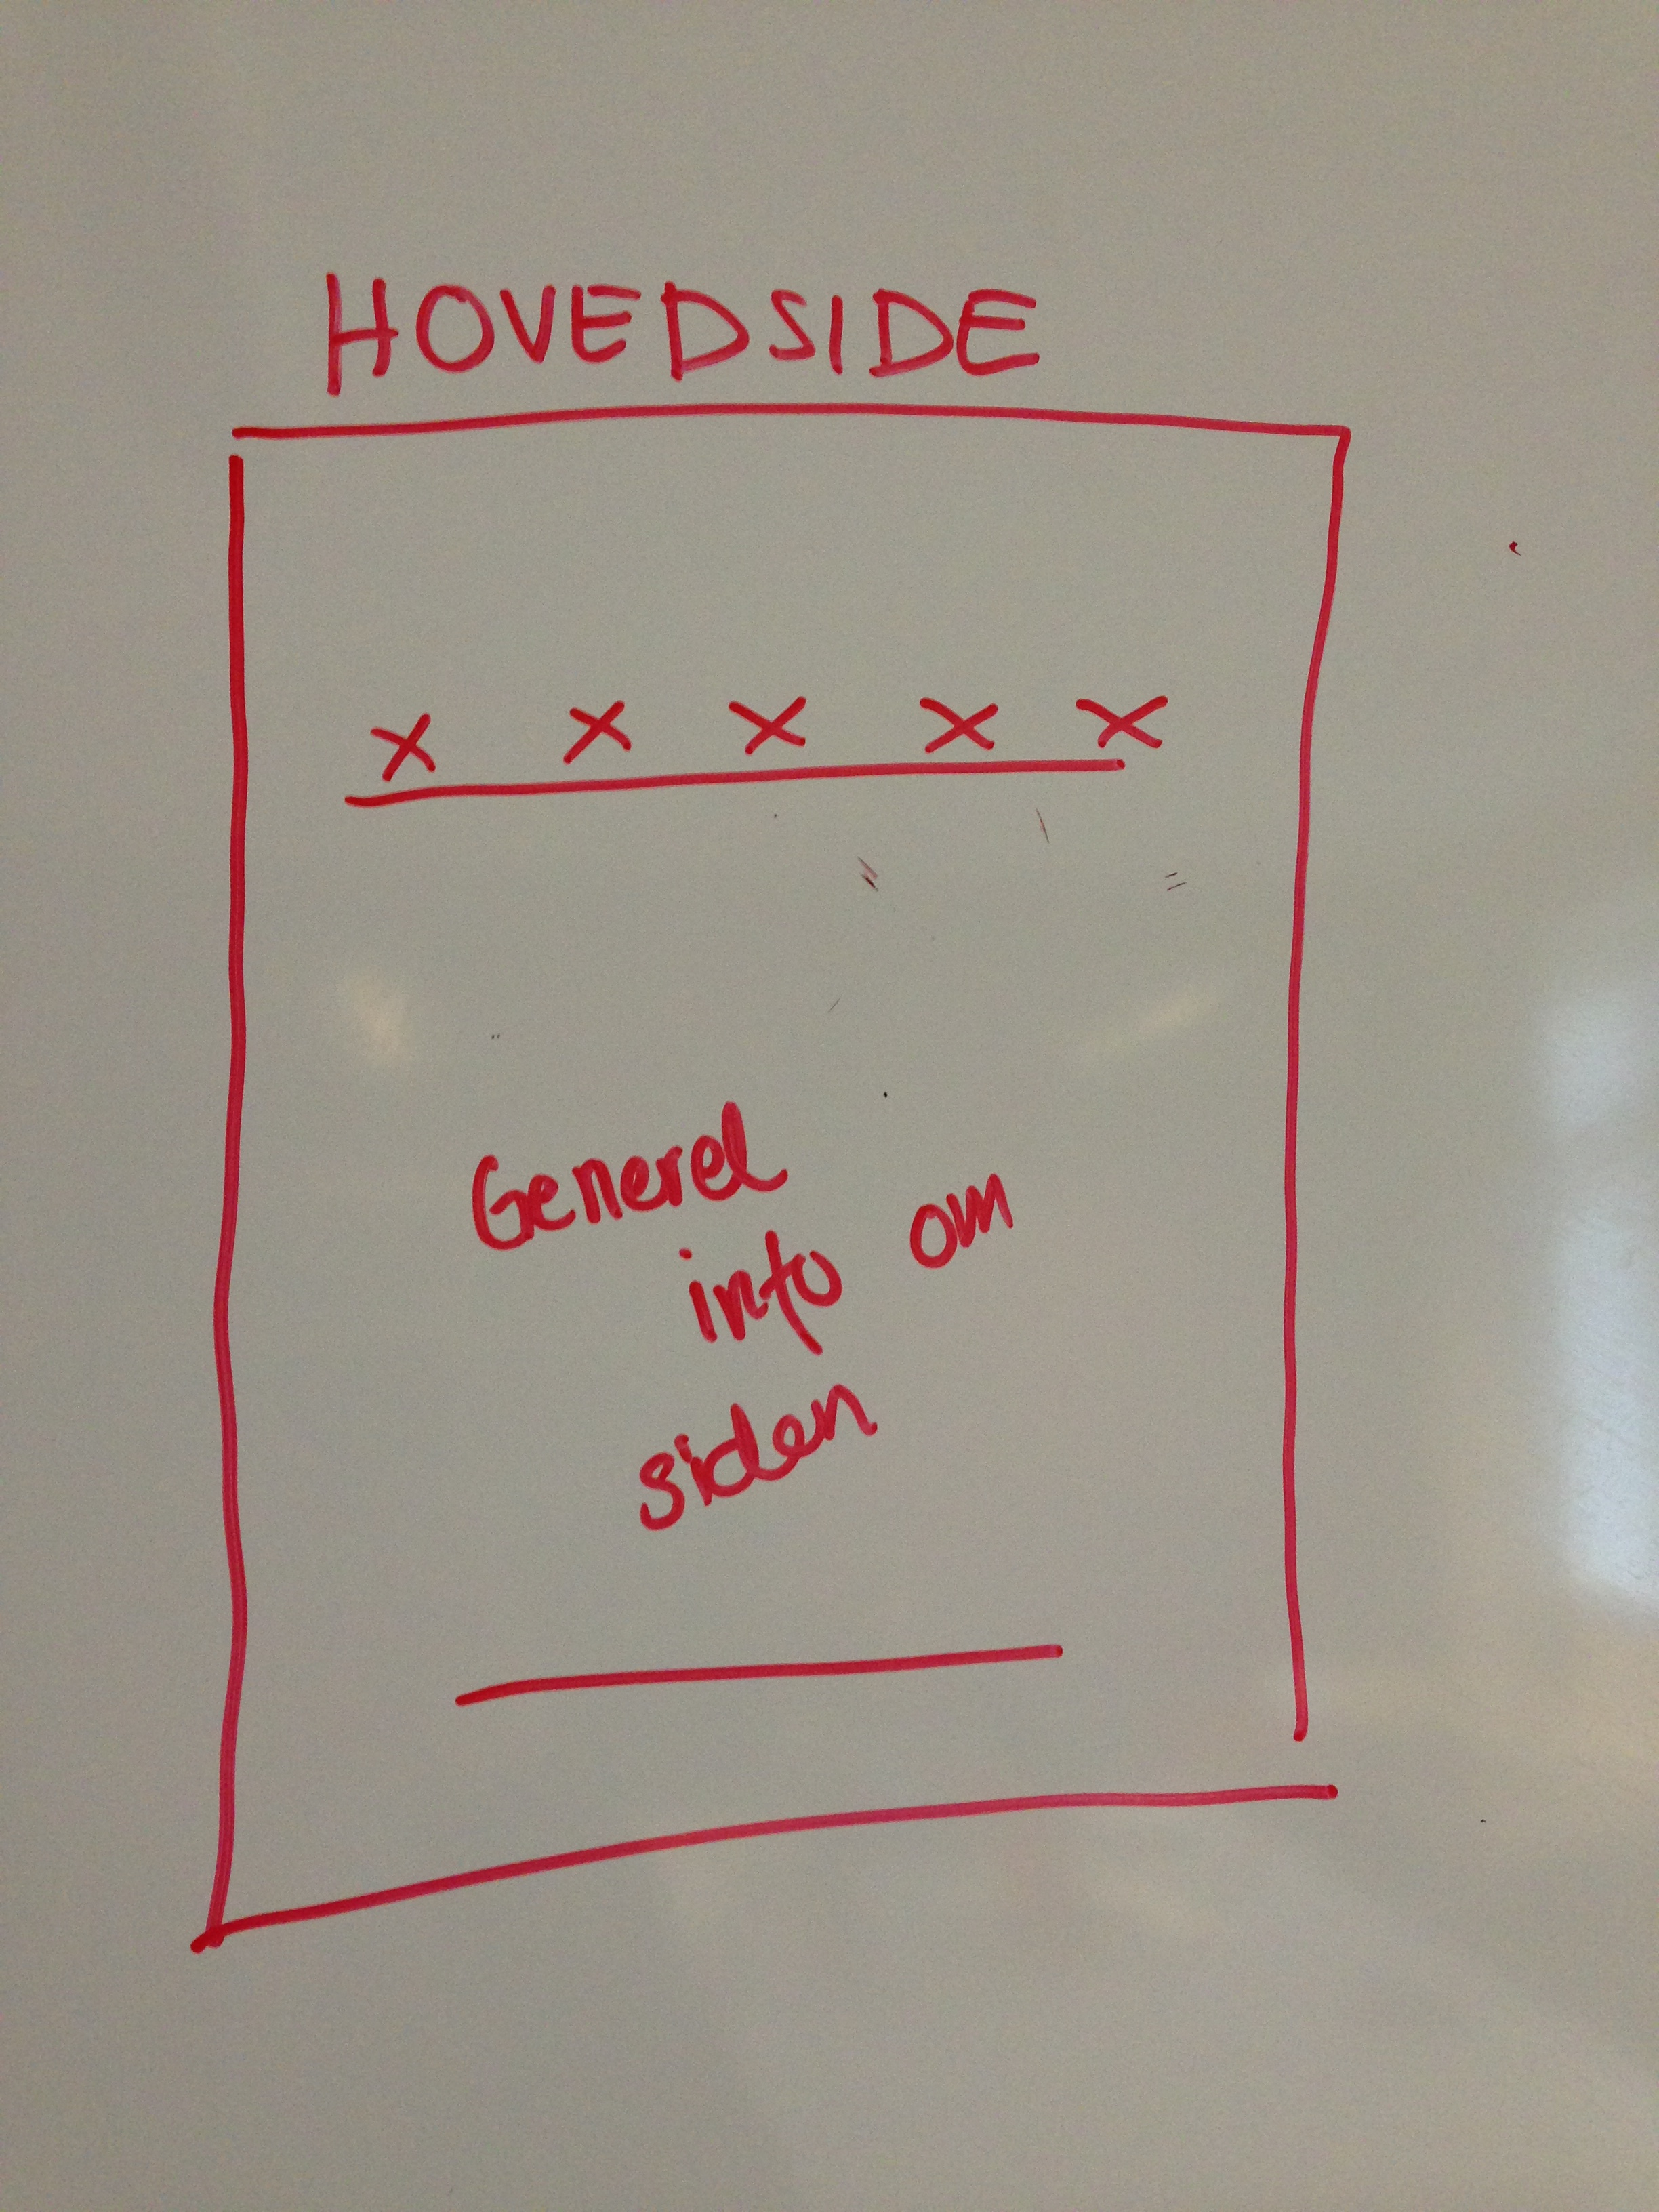 HOVEDSIDE
X X X X X
Generel
info om
siden